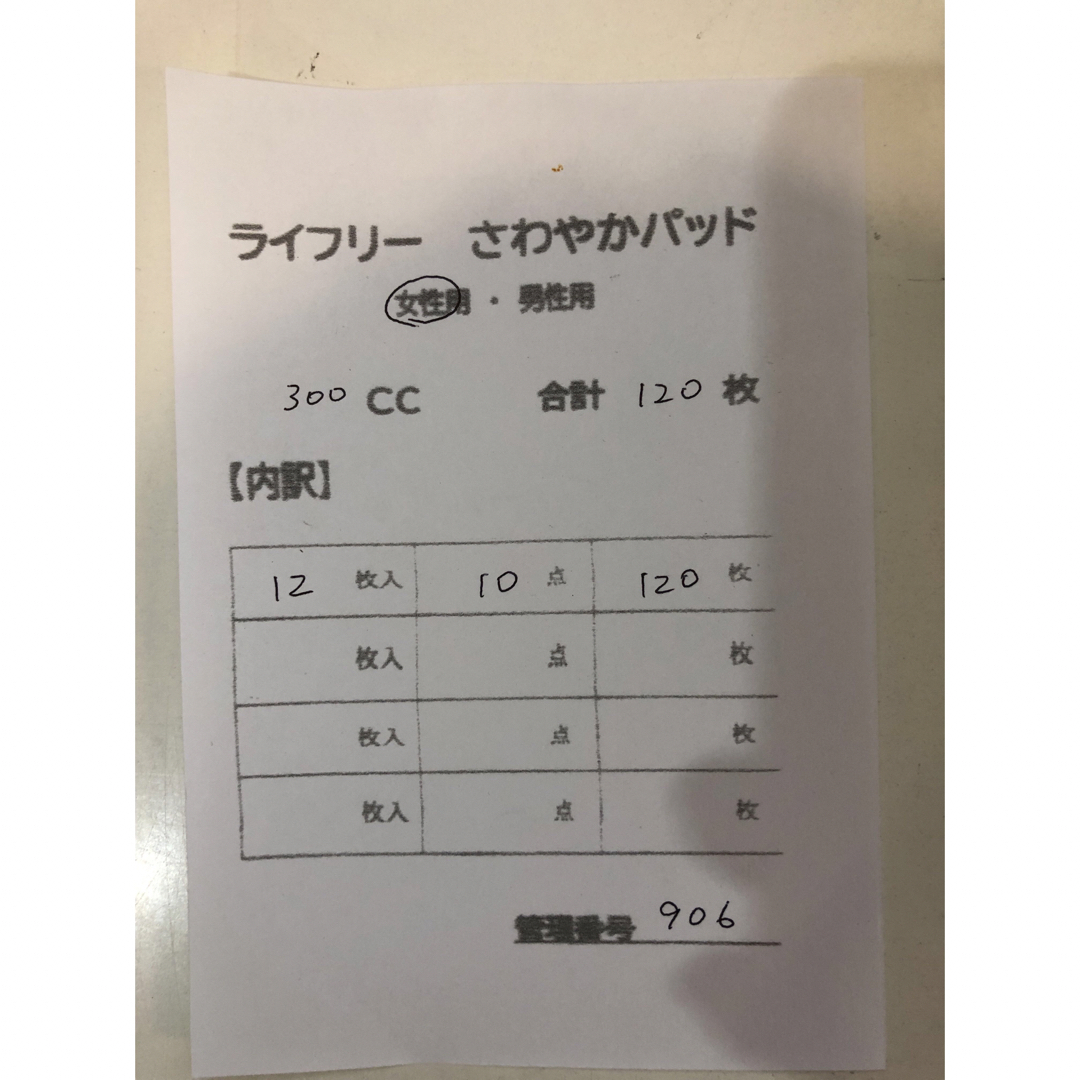 ライフリー　さわやかパッド
女性用 ・ 男性用
300 CC　合計 120 枚
【内訳】
12 枚入　10 点　120 枚
枚入　点　枚
枚入　点　枚
枚入　点　枚
管理番号 906